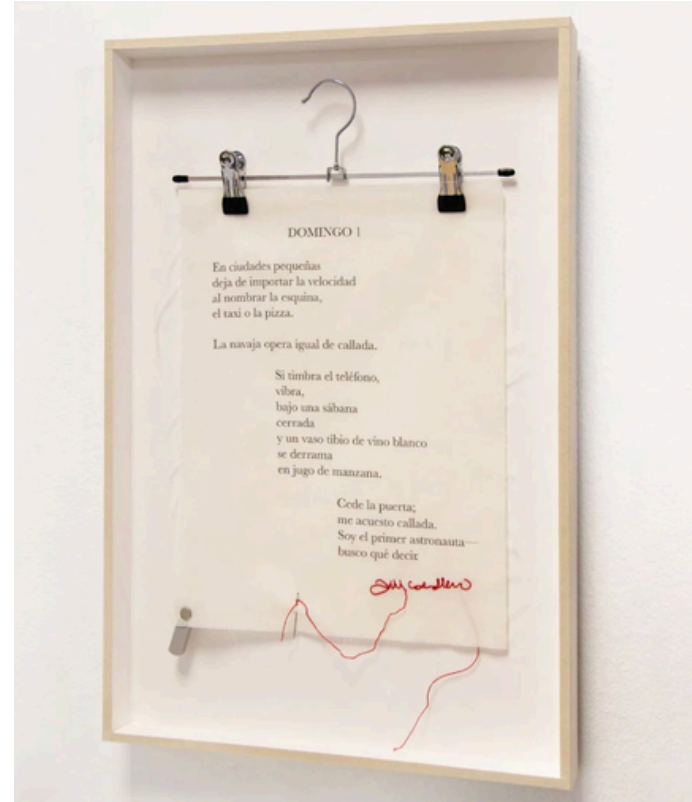 DOMINGO 1
En ciudades pequeñas
deja de importar la velocidad
al nombrar la esquina,
el taxi o la pizza.
La navaja opera igual de callada.
Si timbra el teléfono,
vibra,
bajo una sábana
cerrada
y un vaso tibio de vino blanco
se derrama
en jugo de manzana.
Cede la puerta;
me acuesto callada.
Soy el primer astronauta—
busco qué decir.